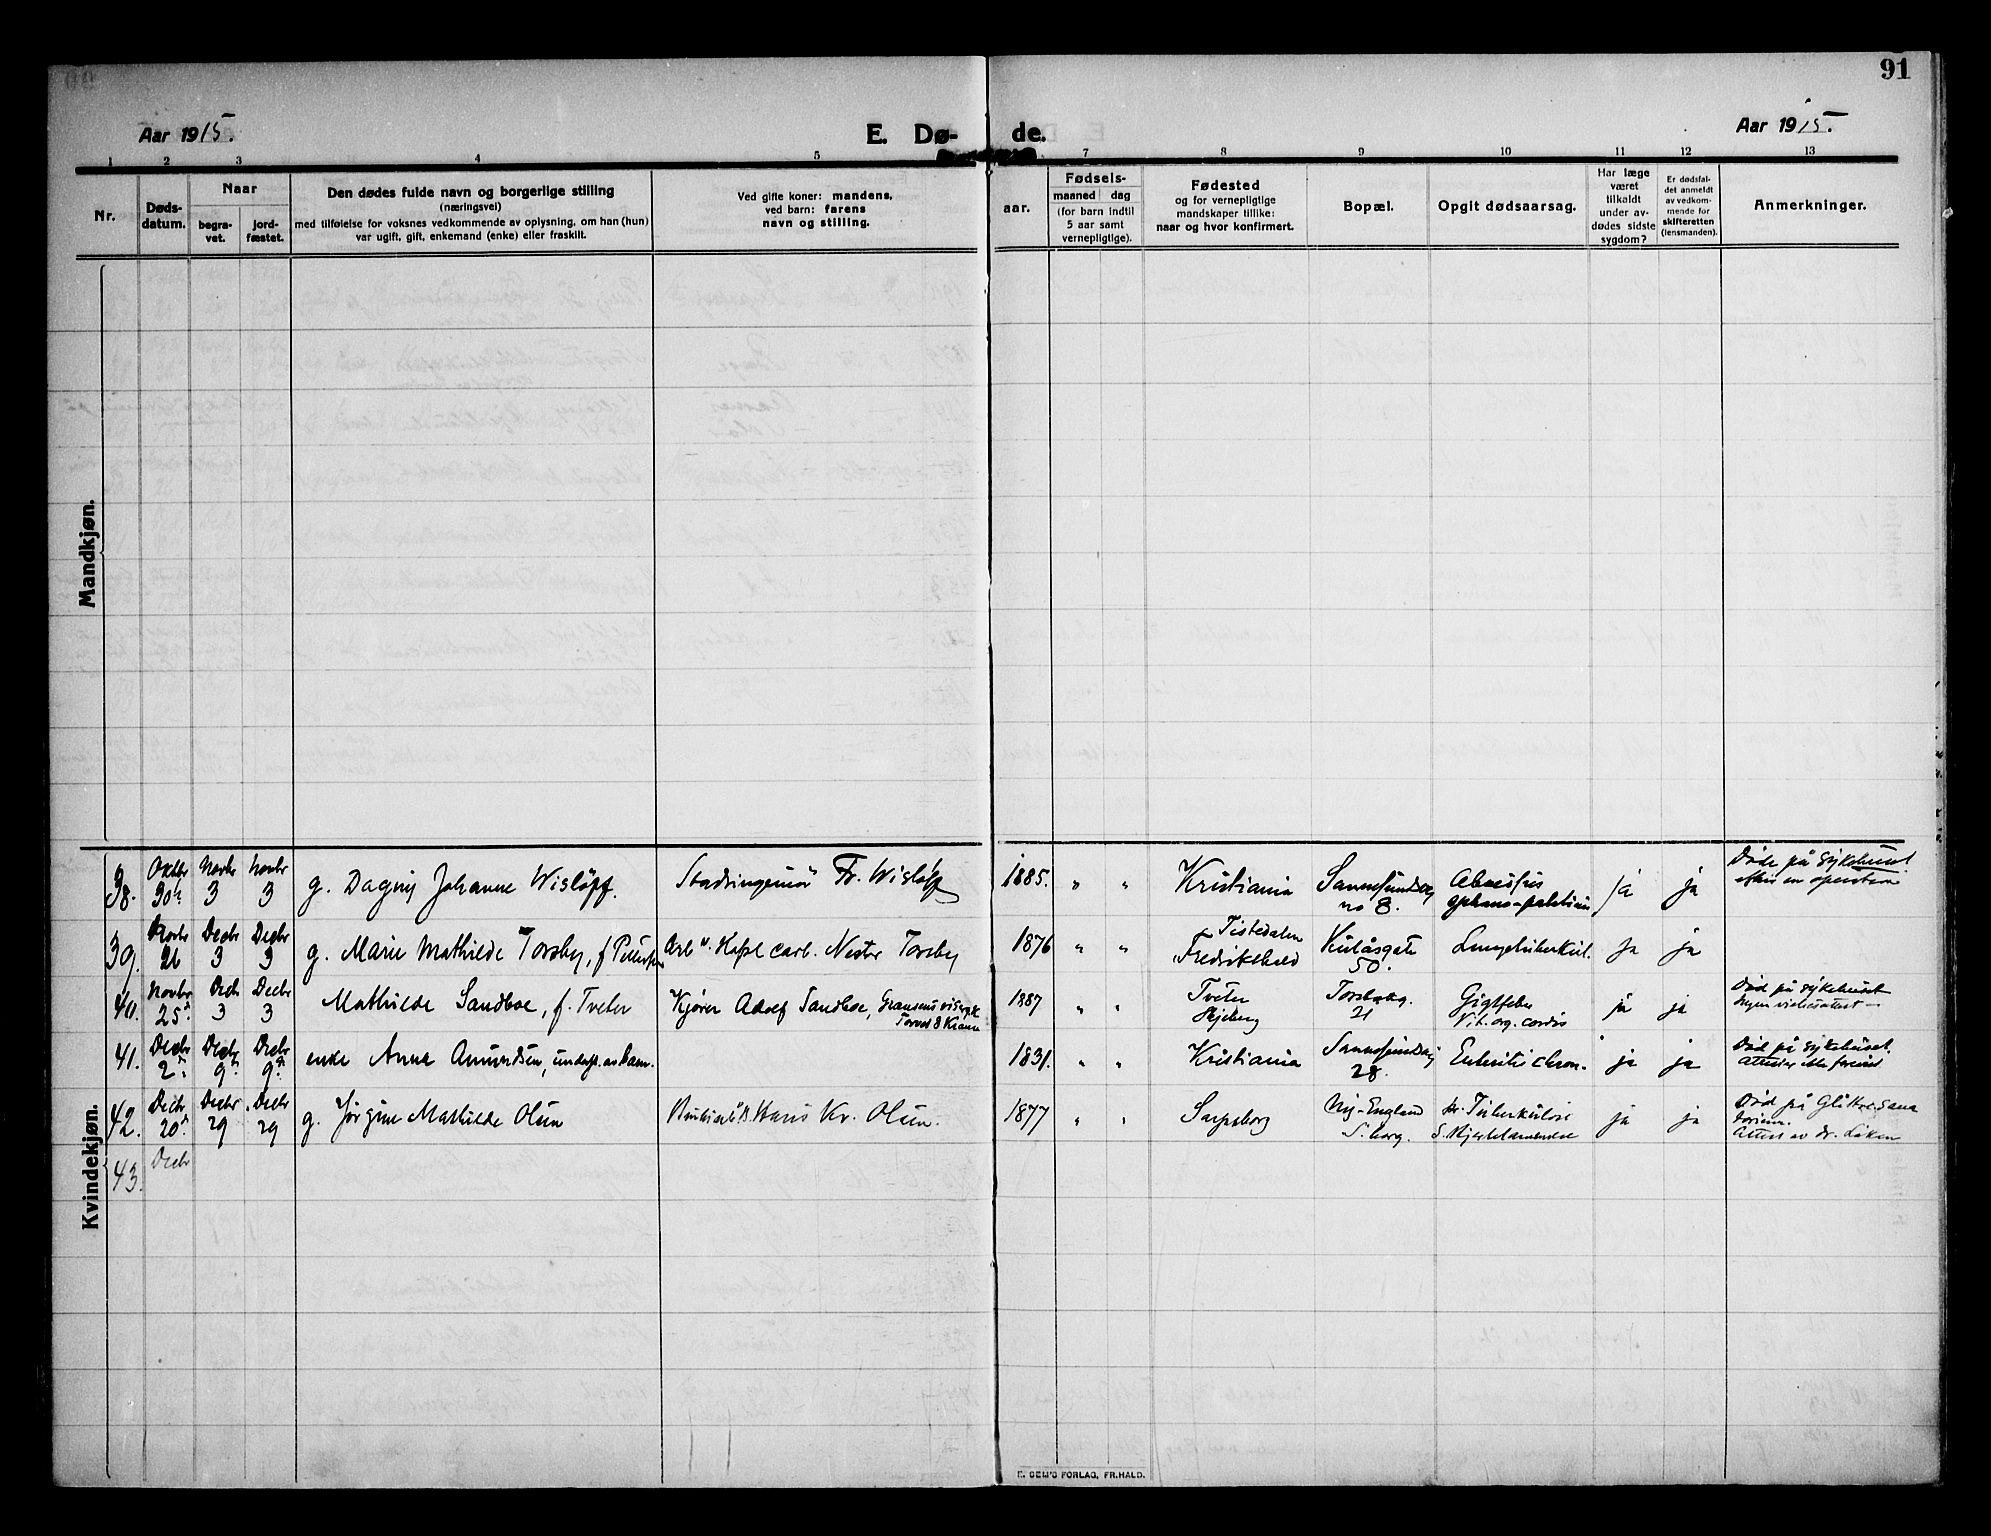 91
Aar 1915.
E. Dø-
de.
Aar 1915.
1 2 3 4 5 7 8 9 10 11 12 13
Nr.
Døds-
datum.
Naar
begra-
vet.
jord-
fæstet.
Den dødes fulde navn og borgerlige stilling
(næringsvei)
med tilføielse for voksnes vedkommende av oplysning, om han (hun)
var ugift, gift, enkemand (enke) eller fraskilt.
Ved gifte koner: mandens,
ved barn: farens
navn og stilling.
aar.
Fødsels-
maaned dag
(for barn indtil
5 aar samt
vernepligtige).
Fødested
og for vernepligtige
mandskaper tillike:
naar og hvor konfirmert.
Bopæl.
Opgit dødsaarsag.
Har læge
været
tilkaldt
under av-
dødes sidste
sygdom?
Er dødsfal-
det anmeldt
av vedkom-
mende for
skifteretten
(lensmanden).
Anmerkninger.
Mandkjøn.
Kvindekjøn.
38. Oktbr 30te Novbr 3 Novbr 3 g. Dagny Johanne Wisløff. Stadsingeniør Fr. Wisløff 1885. " " Kristiania Sannesundsvej no 8. ja ja Død på sykehuset
efter en operation
39. Novbr 26 Decbr 3 Decbr 3 g. Marie Mathilde Torsby, f Pettersen Arb. v. Hafsl carb. Nestor Torsby 1876 " " Tistedalen
Fredrikshald Kulåsgate
50. Lungetuberkul. ja ja
40. Novbr 25de Decbr 3 Decbr 3 Mathilde Sandboe, f. Tveter Kjører Adolf Sandboe, 1887 " " Tveter
Skjeberg Torsbekg.
21 Gigtfeber
Vit. org. cordis ja ja Død på sykehuset
41. Decbr 2. Decbr 9. Decbr 9. enke Anna Amundsen, underst. av kom. 1831. " " Kristiania Sannesundsvej
28. Enteritis chron. ja ja Død på sykehuset.
42. Decbr 20de Decbr 29 Decbr 29 g. Jørgine Mathilde Olsen Hans Kr. Olsen. 1877 " " Sarpsborg Ny-England
S. borg. Tuberkulose ja ja Død på Glitre Sana
torium.
Attest av dr. Løken
43. Decbr
E. SEM'S FORLAG, FR.HALD.